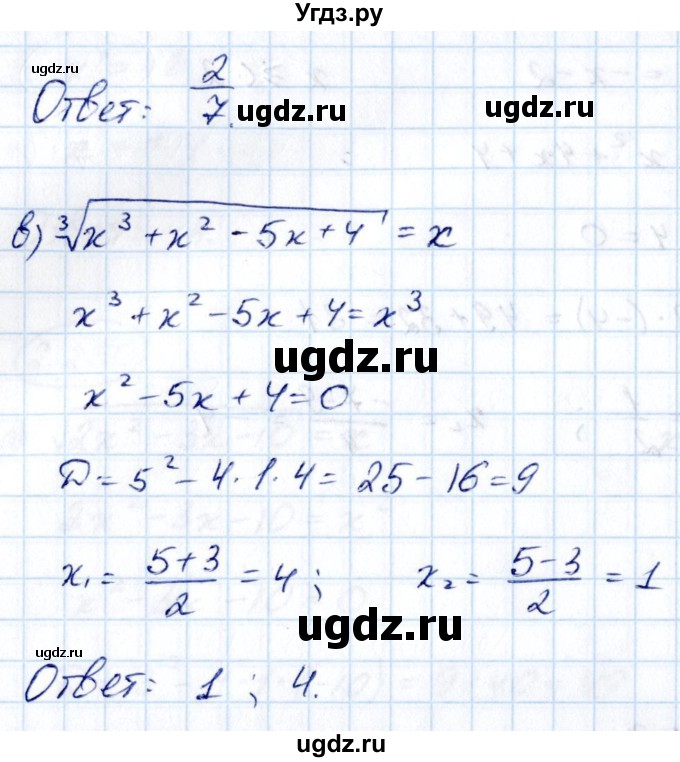 Угдз.ру
ugdz.ru
Ответ: 2/7. ugdz.ru ugdz.ru
в) ∛(x³ + x² - 5x + 4) = x
x³ + x² - 5x + 4 = x³
ugdz.ru
x² - 5x + 4 = 0
Д = 5² - 4·1·4 = 25 - 16 = 9
x₁ = (5+3)/2 = 4; x₂ = (5-3)/2 = 1
ugdz.ru
ugdz.ru
Ответ: 1; 4.
ugdz.ru